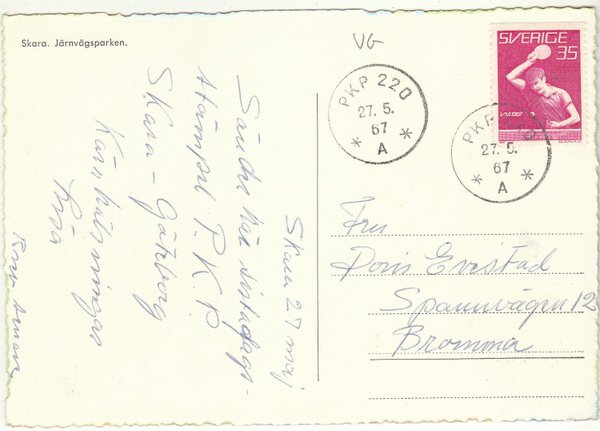 Skara. Järnvägsparken.
VG
SVERIGE
35
VM 1967
PKP 220
27. 5.
67
A
PKP 220
27. 5.
67
A
Skara 27 maj
Sänder här sistadags-
stämpel P.K.P.
Skara - Göteborg
Kära hälsningar
Fru
Doris Evestad
Spannvägen 12
Bromma